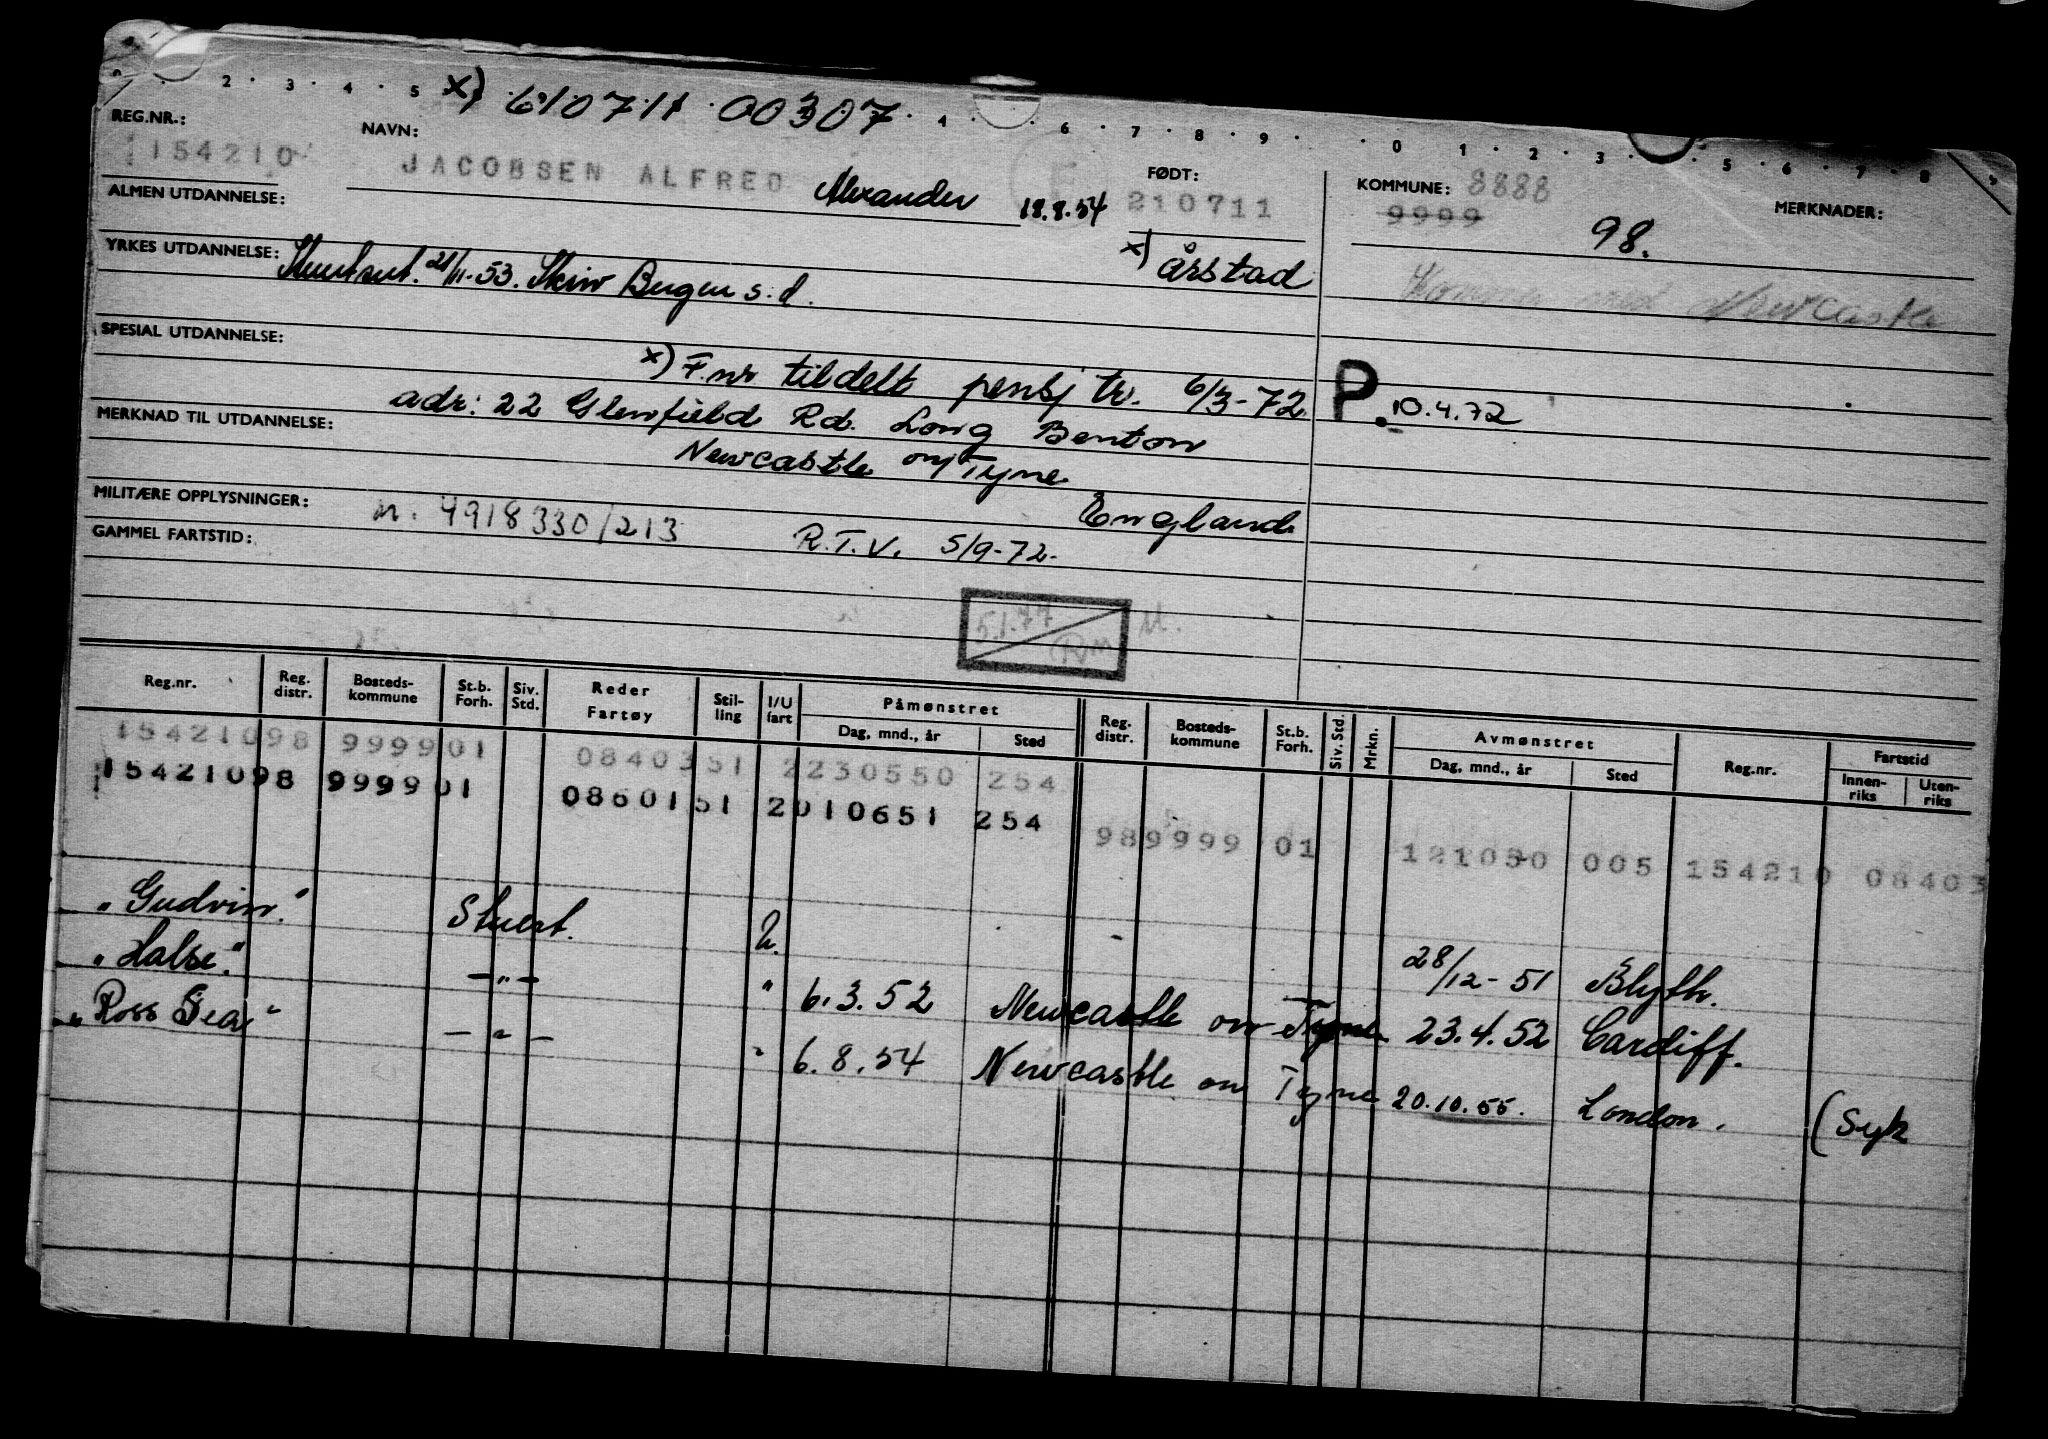 2 · 3 · 4 · 5 x) 610711 00307 · 4 · 6 · 7 · 8 · 9 · 0 1 · 2 · 3 · 5 · 6 · 7 · 8 · 9
REG.NR.: NAVN: FØDT: KOMMUNE: 8888 MERKNADER:
154210 JACOBSEN ALFRED Alexander 18.8.54 210711 9999 98.
ALMEN UTDANNELSE:
x) Årstad
YRKES UTDANNELSE: 21/11-53. Skriv Bergen s.d. Newcastle
SPESIAL UTDANNELSE:
x) F.nr tildelt pensj tr. 6/3-72 P. 10.4.72
adr: 22 Glenfield Rd. Long Benton
MERKNAD TIL UTDANNELSE:
Newcastle on Tyne
England
MILITÆRE OPPLYSNINGER: n. 4918330/213 R.T.V. 5/9-72.
GAMMEL FARTSTID:
5.1.77
Reg.nr. Reg. distr. Bosteds-kommune St.b. Forh. Siv. Std. Reder Fartøy Stil-ling I/U fart Påmønstret Dag, mnd., år Sted Reg. distr. Bosteds-kommune St.b. Forh. Siv. Std. Mrkn. Avmønstret Dag, mnd., år Sted Reg.nr. Fartstid Innen-riks Uten-riks
15421098 999901 0840351 2230550 254
15421098 999901 0860151 2010651 254
989999 01 121050 005 154210 08403
"Gudvin." Stuert. U. 28/12-51 Blyth.
"Halse." -"- " 6.3.52 Newcastle on Tyne 23.4.52 Cardiff.
"Ross Sea" -"- " 6.8.54 Newcastle on Tyne 20.10.55. London. (Syk